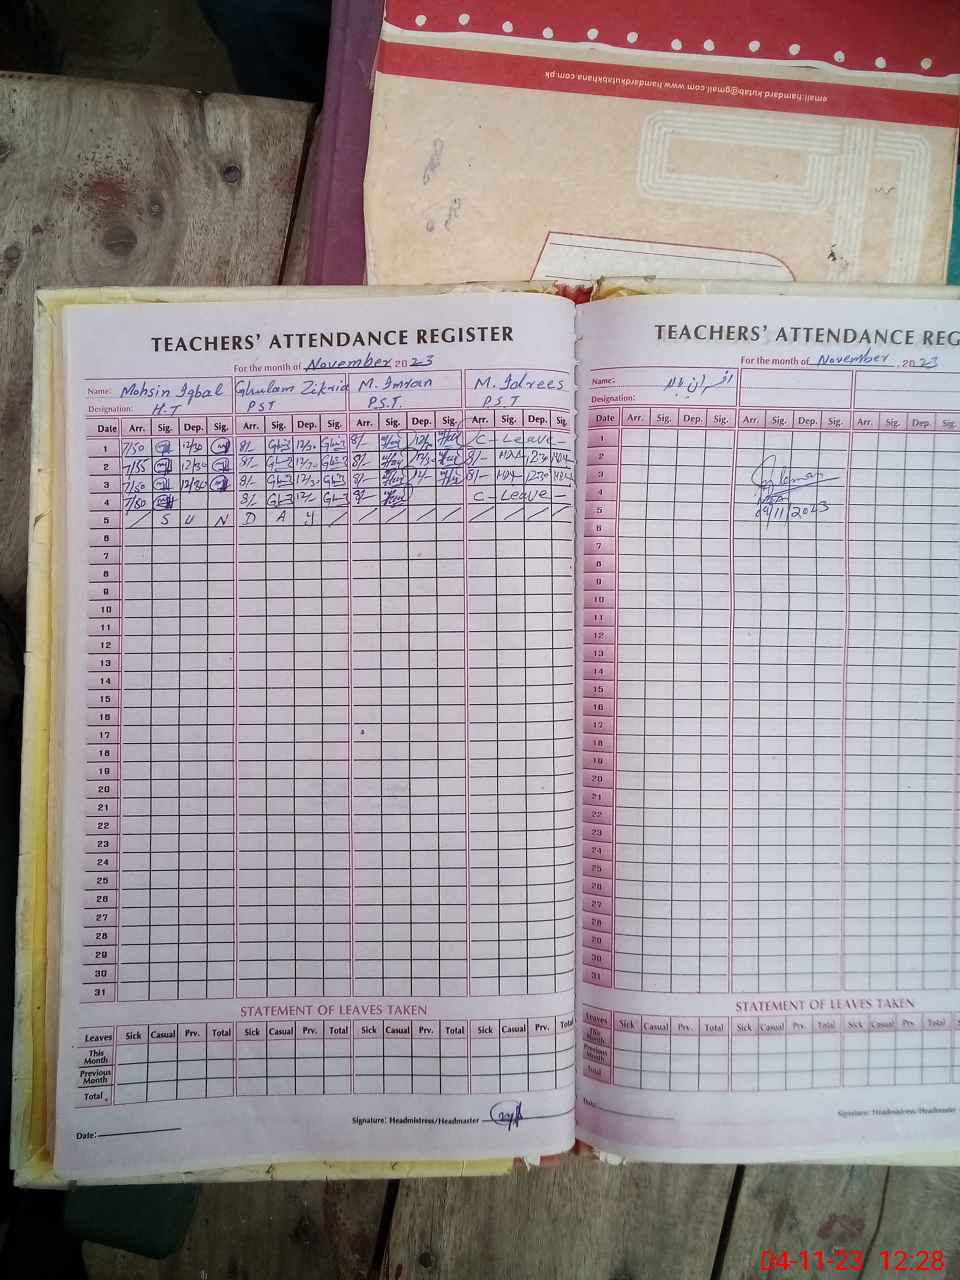 email:hamdard.kutab@gmail.com www.hamdardkutabkhana.com.pk
TEACHERS' ATTENDANCE REGISTER
For the month of November 2023
Name: Mohsin Iqbal Ghulam Zikria M. Imran M. Idrees
Designation: H.T PST P.S.T. P.S.T
Date Arr. Sig. Dep. Sig. Arr. Sig. Dep. Sig. Arr. Sig. Dep. Sig. Arr. Sig. Dep. Sig.
1 7/50 12/30 8/- 12/30 8/- C - Leave -
2 7/55 12/30 8/- 8/- 8/- 1230
3 7/50 12/30 8/- 12/30 8/- 8/- 1230
4 7/50 8/- 12/- 8/- C - Leave -
5 S U N D A Y
6
7
8
9
10
11
12
13
14
15
16
17
18
19
20
21
22
23
24
25
26
27
28
29
30
31
STATEMENT OF LEAVES TAKEN
Leaves Sick Casual Prv. Total Sick Casual Prv. Total Sick Casual Prv. Total Sick Casual Prv. Total
This Month
Previous Month
Total
Signature: Headmistress/Headmaster
Date:
TEACHERS' ATTENDANCE REG
For the month of November, 2023
Name:
Designation:
Date Arr. Sig. Dep. Sig. Arr. Sig. Dep. Sig. Arr. Sig. Dep. Sig.
1
2
3
4
5 04/11/2023
6
7
8
9
10
11
12
13
14
15
16
17
18
19
20
21
22
23
24
25
26
27
28
29
30
31
STATEMENT OF LEAVES TAKEN
Leaves Sick Casual Prv. Total Sick Casual Prv. Total Sick Casual Prv. Total Sick
This Month
Previous Month
Total
Date:
Signature: Headmistress/Headmaster
04-11-23 12:28